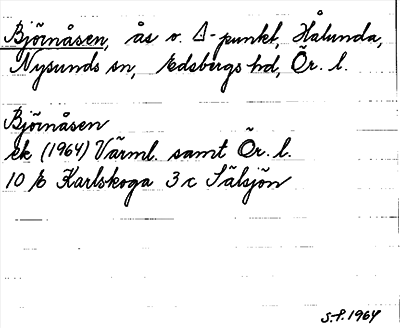 Björnåsen, ås o. △-punkt, Hålunda,
Nysunds sn, Edsbergs hd, Ör. l.
Björnåsen
ek (1964) Värml. samt Ör. l.
10 E Karlskoga 3 c Sälsjön
S.F. 1964